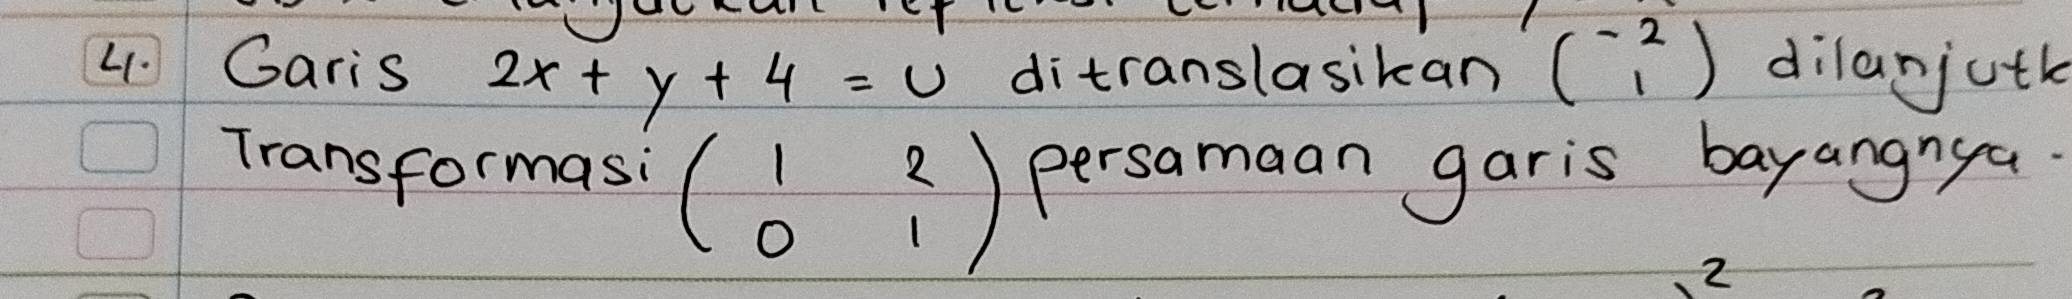 4. Garis 2x + y + 4 = 0 ditranslasikan (-2 1) dilanjutk
Transformasi (1 2 0 1) persamaan garis bayangnya.
2